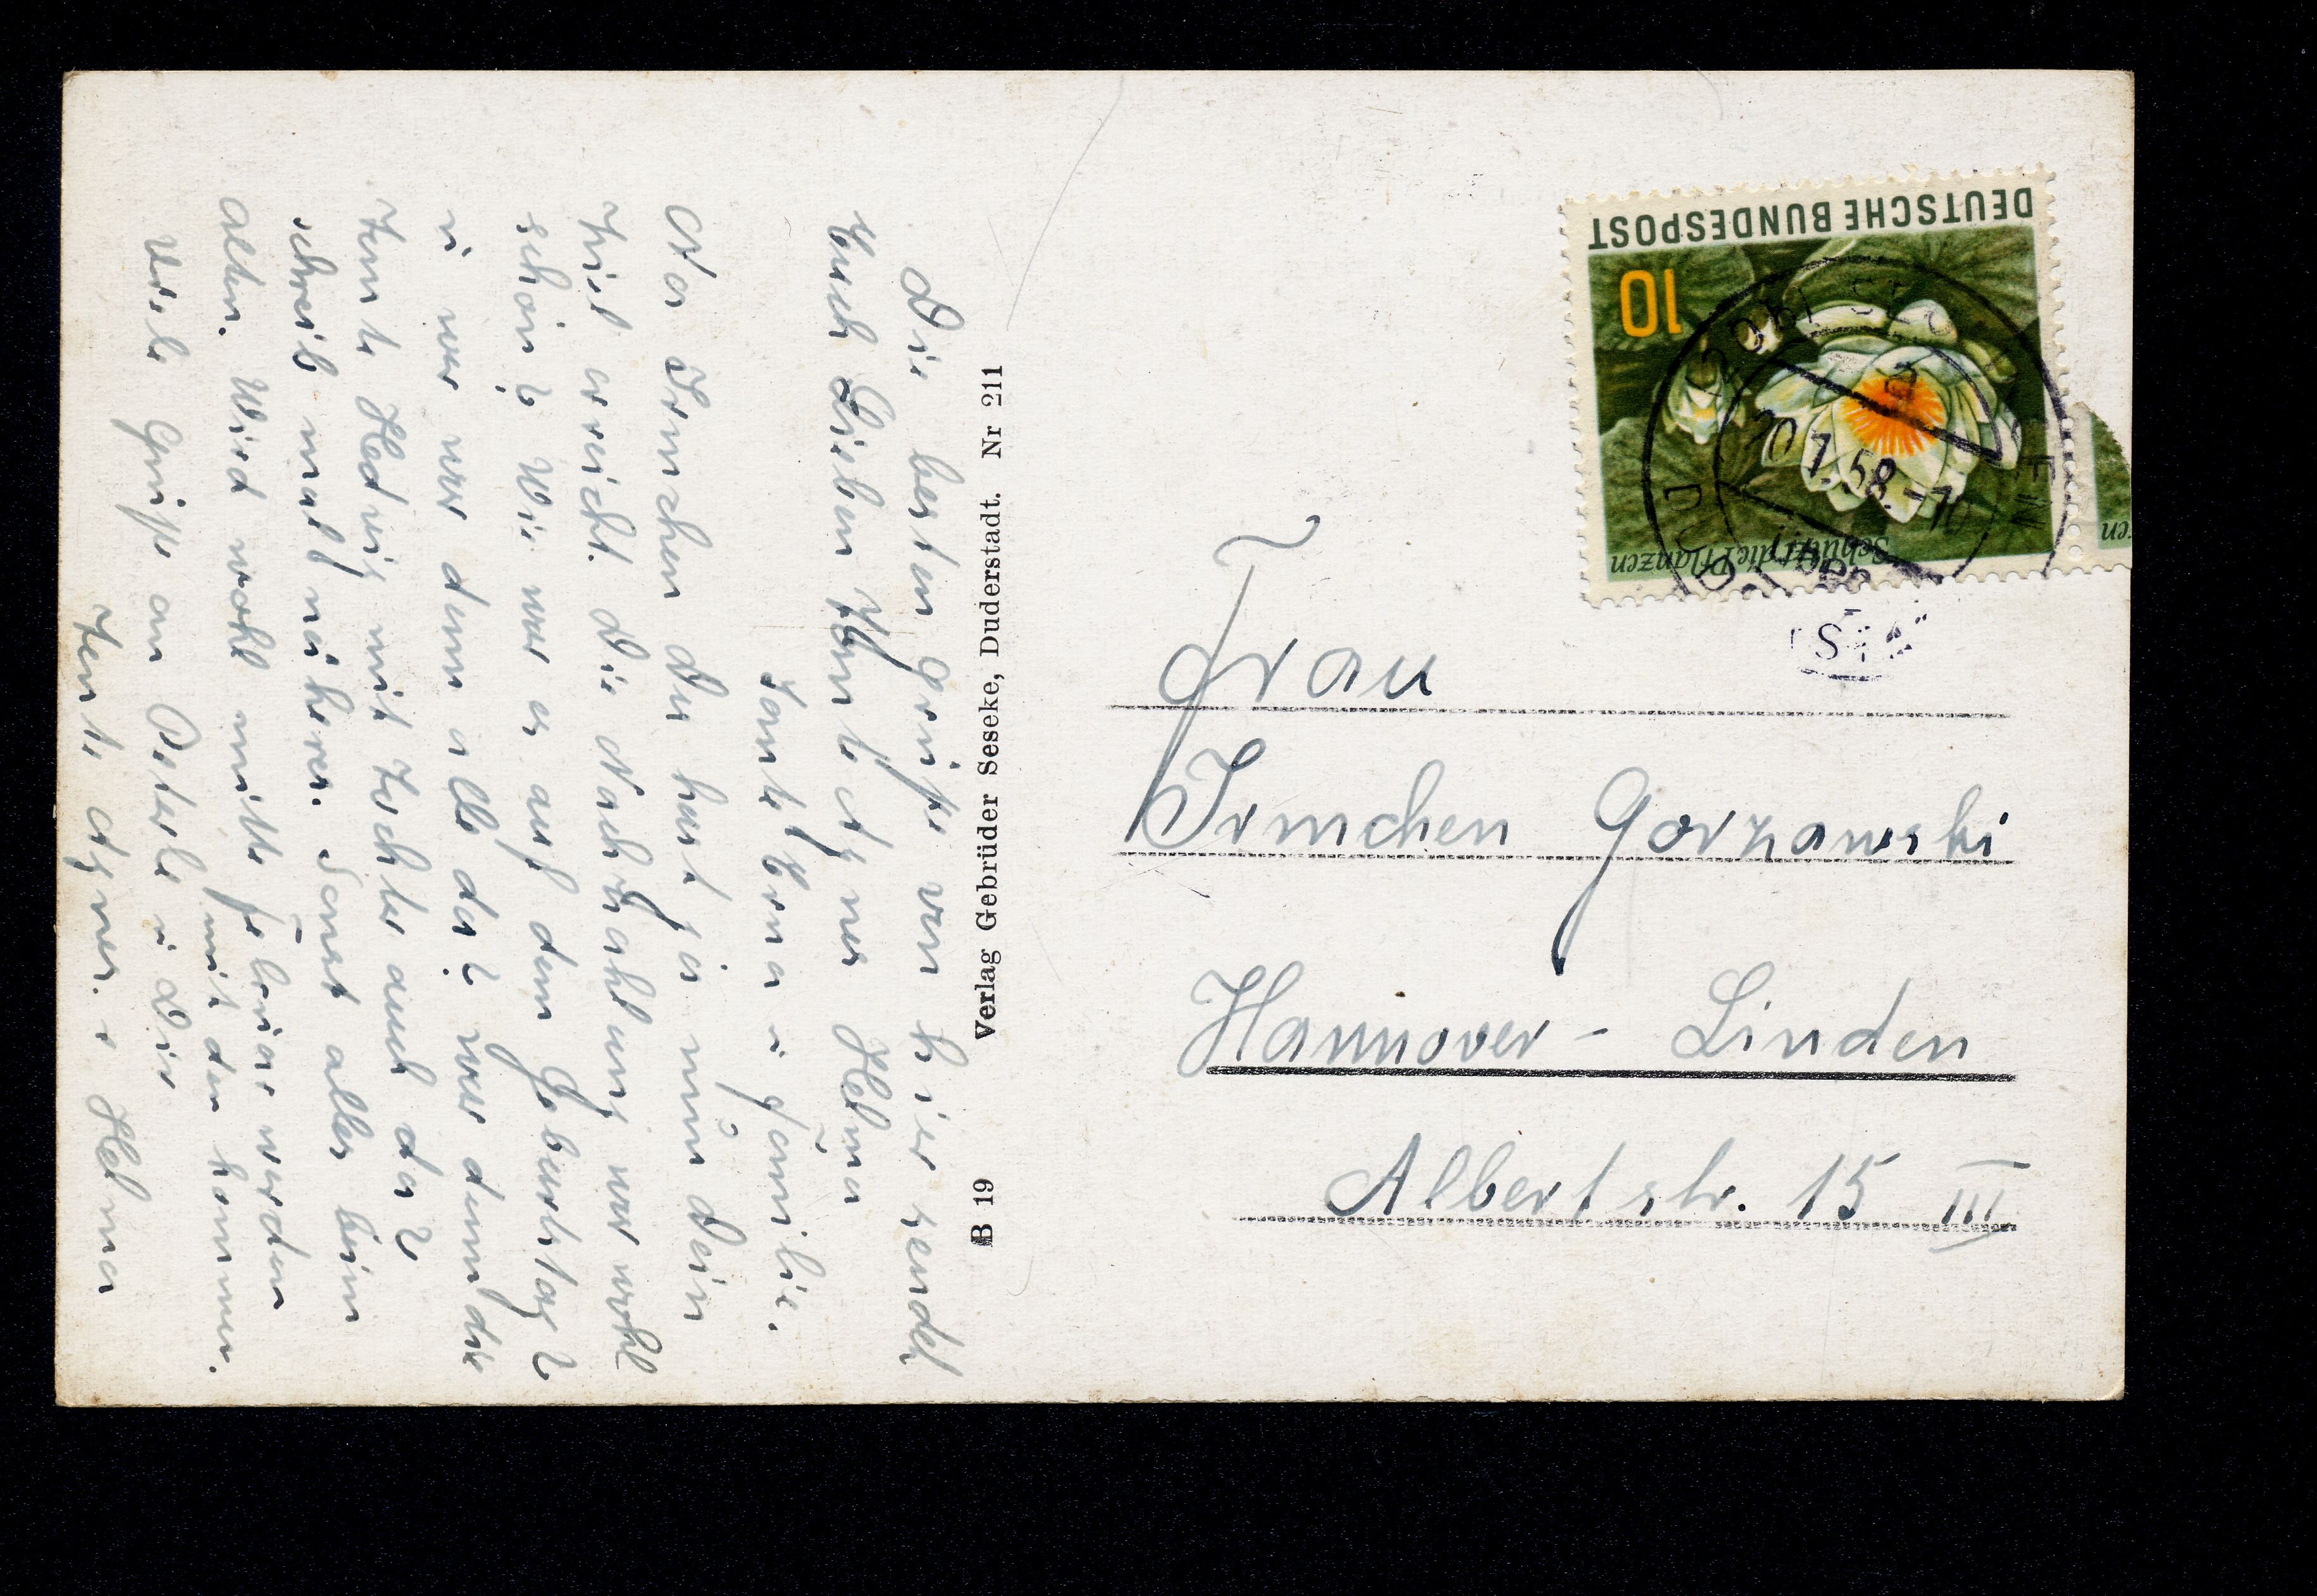 Die besten Grüße von hier sendet
Euch Lieben Tante Agnes Helma
Tante Erna u Familie.
Na Irmchen Du hast ja nun Dein
Ziel erreicht. Die Nachzahlung war wohl
schön? Wie war es auf dem Geburtstag?
u wer war denn alle da? war denn die
Tante Hedwig mit Tochter auch da?
schreib mal näheres. Sonst alles beim
alten. Wird wohl mitte Februar werden
mit den kommen.
Viele Grüße an Peterle u Dir
Tante Agnes. u Helma
Verlag Gebrüder Seseke, Duderstadt. Nr 211
B 19
DEUTSCHE BUNDESPOST
10
Schützt die Pflanzen
en
20.1.58.-10
Frau
Irmchen Gorzawski
Hannover - Linden
Albertstr. 15 III